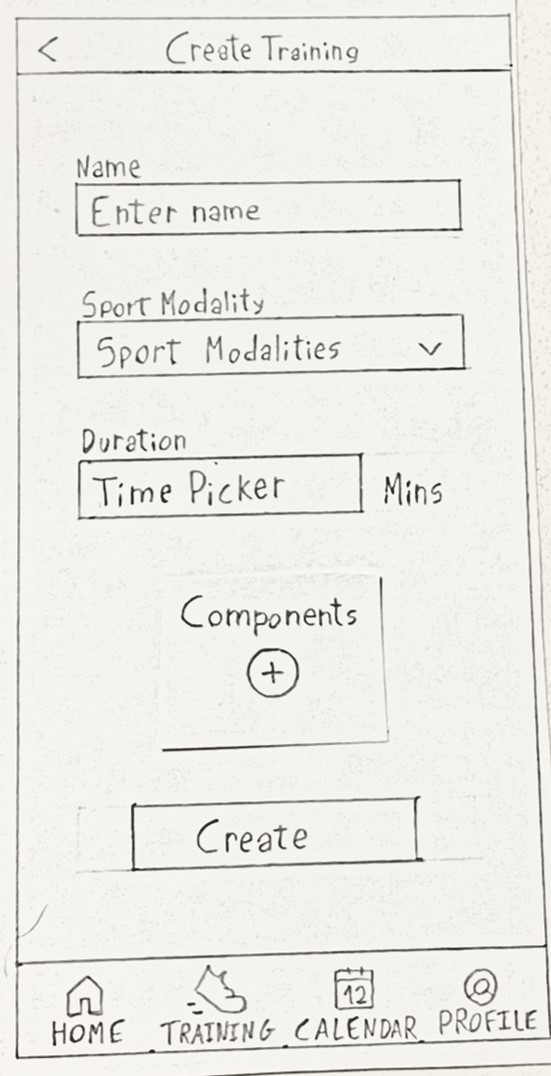 < Create Training
Name
Enter name
Sport Modality
Sport Modalities
Duration
Time Picker Mins
Components
+
Create
12
HOME TRAINING CALENDAR PROFILE